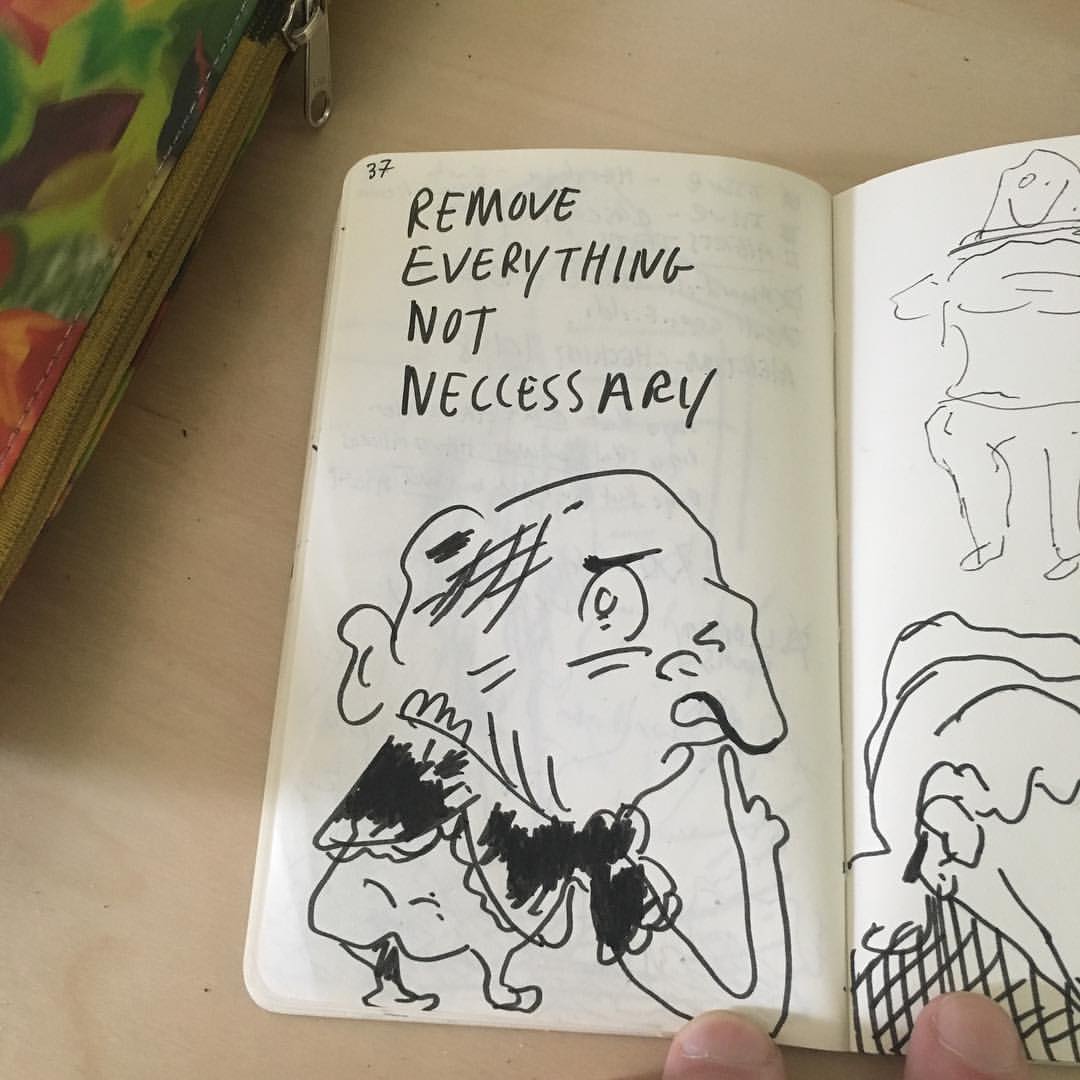 37
REMOVE
EVERYTHING
NOT
NECCESSARY